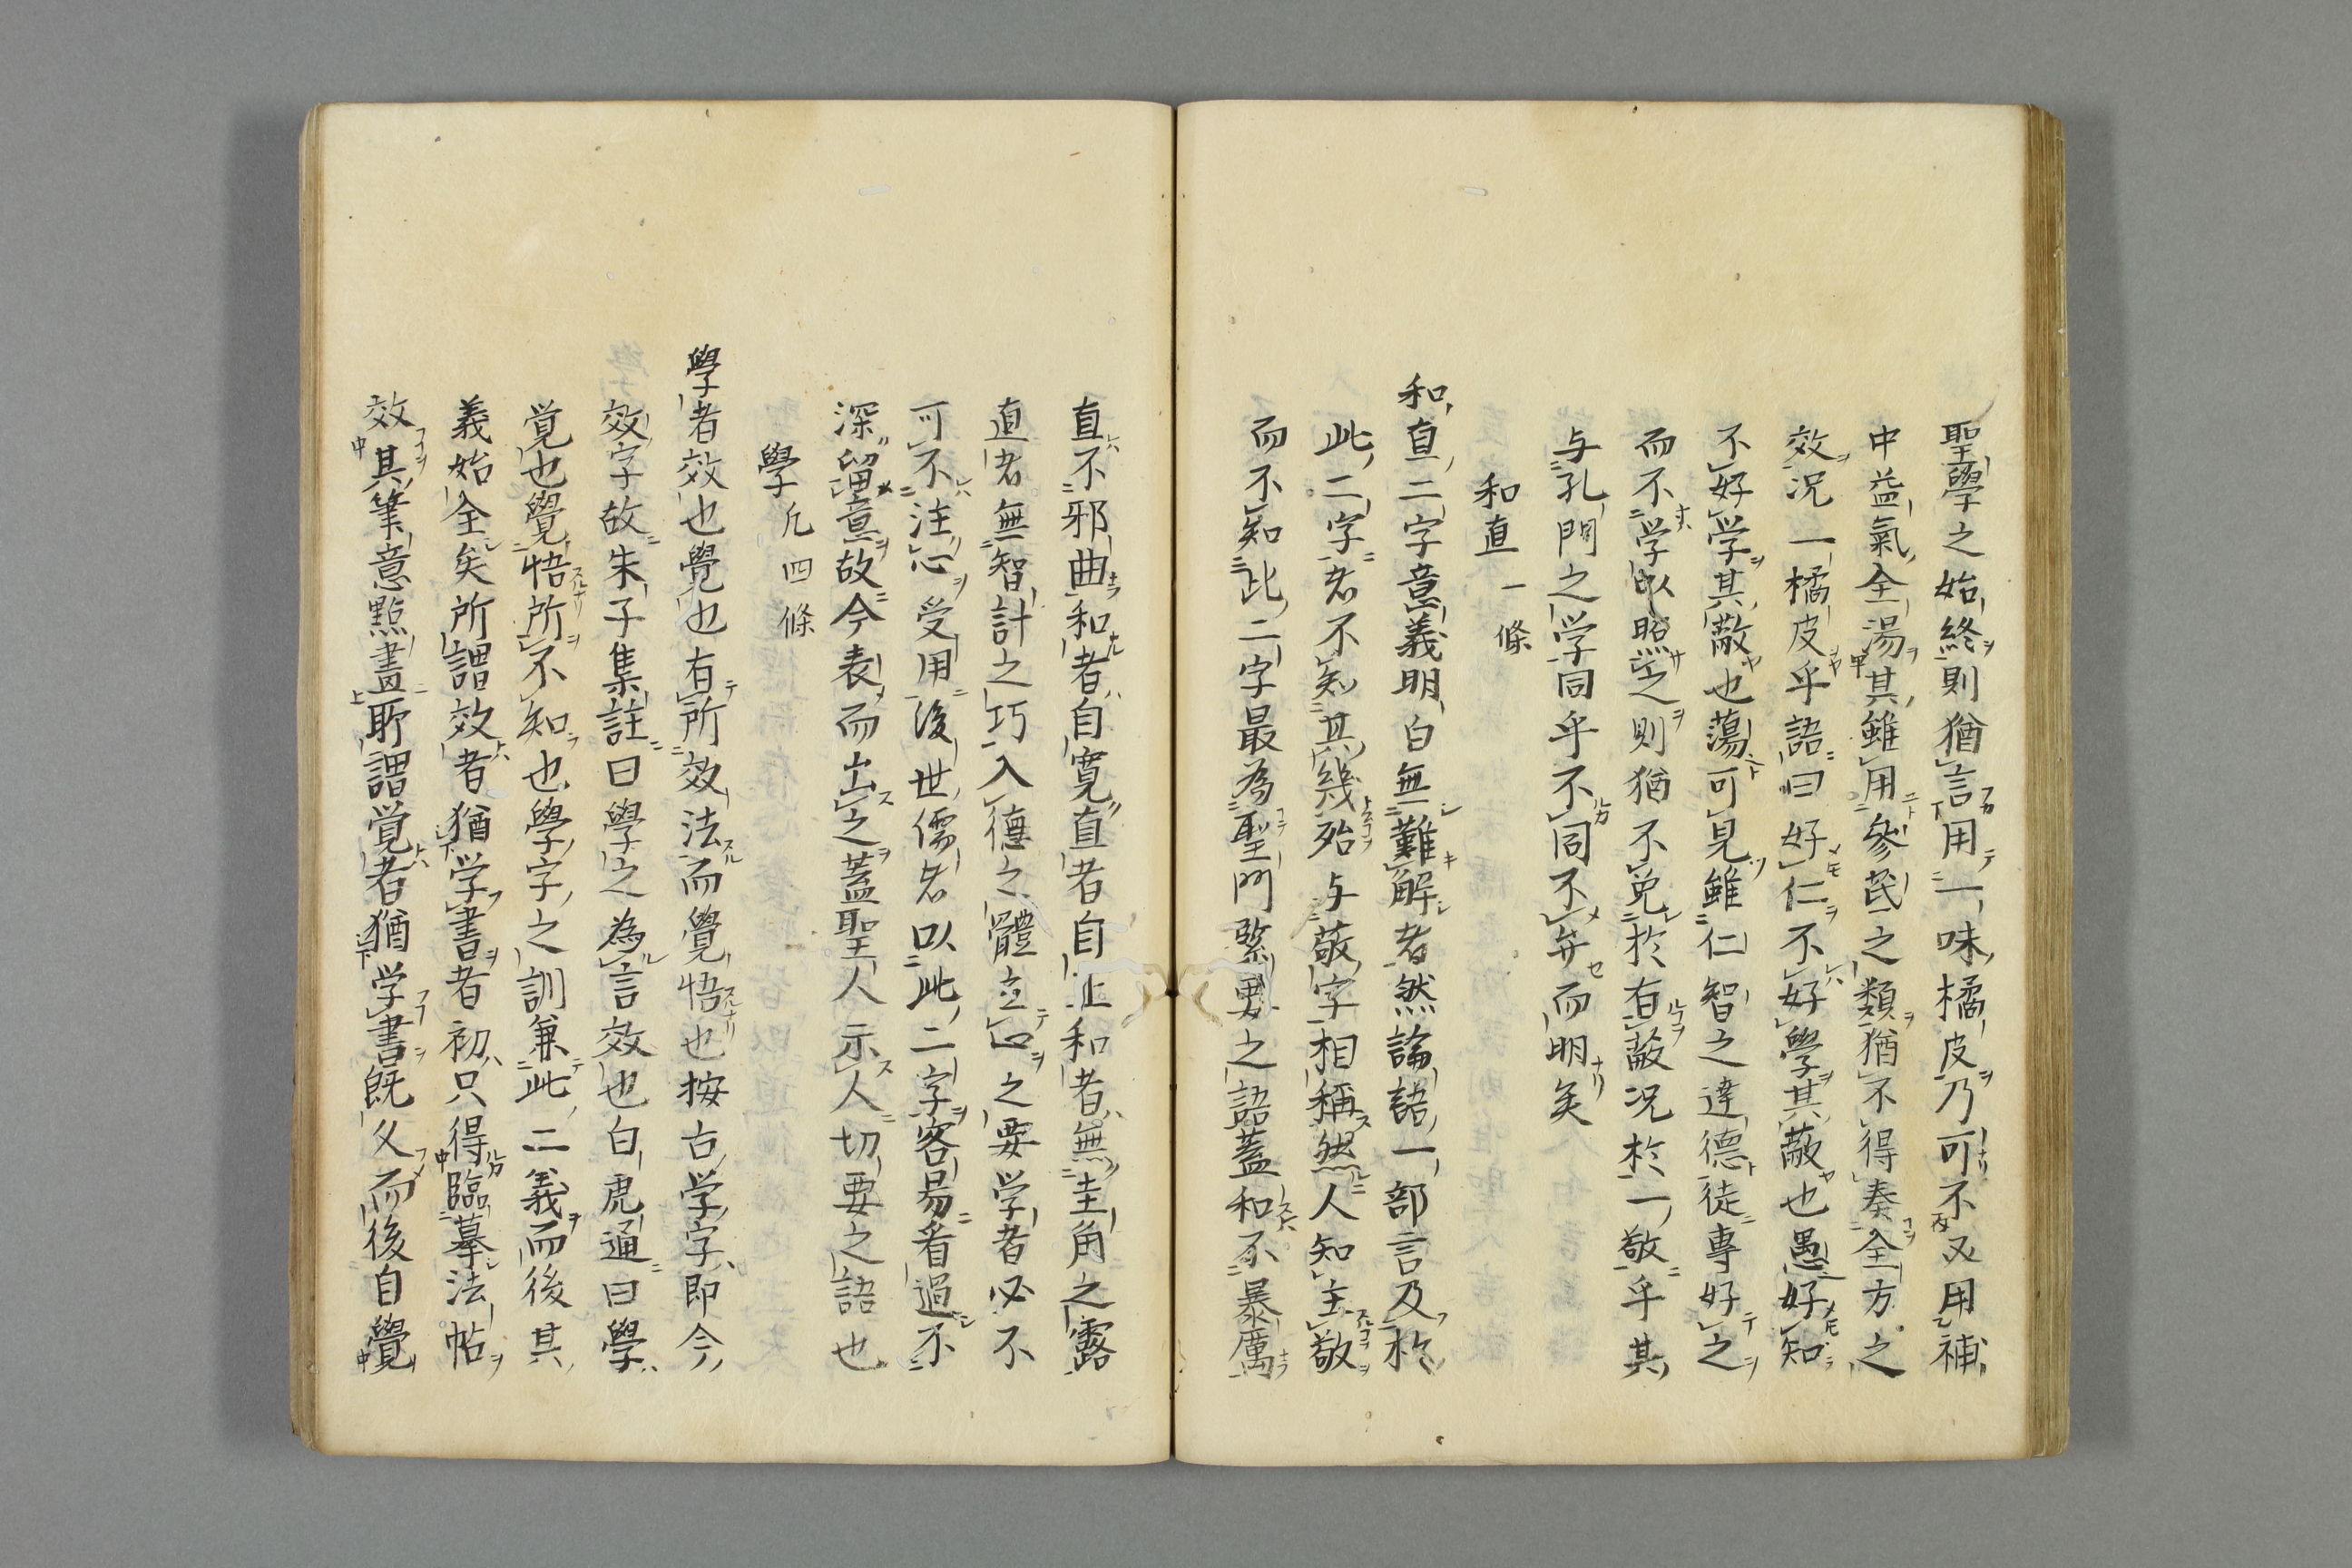 聖學之始終則猶言用一味橘皮乃可不又用補
中益氣全湯其雖用參芪之類猶不得奏全方之
效況一橘皮乎語曰好仁不好學其蔽也愚好知
不好学其蔽也蕩可見雖仁智之達德徒專好之
而不学以照之則猶不免於有蔽況於一敬乎其
与孔門之学同乎不同不弁而明矣
和直 一條
和直二字意義明白無難解者然論語一部言及於
此二字者不知其幾殆与敬字相稱然人知主敬
而不知此二字最為聖門緊要之語蓋和不暴厲
直不邪曲和者自寛直者自正和者無圭角之露
直者無智計之巧入德之體立心之要学者必不
可不注心受用後世儒者以此二字容易看過不
深留意故今表而出之蓋聖人示人切要之語也
學 凢四條
學者效也覺也有所效法而覺悟也按古学字即今
效字故朱子集註曰學之為言效也白虎通曰學
覚也覺悟所不知也學字之訓兼此二義而後其
義始全矣所謂效者猶学書者初只得臨摹法帖
效其筆意點畫所謂覚者猶学書既久而後自覺